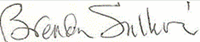 Brendan Sullivan